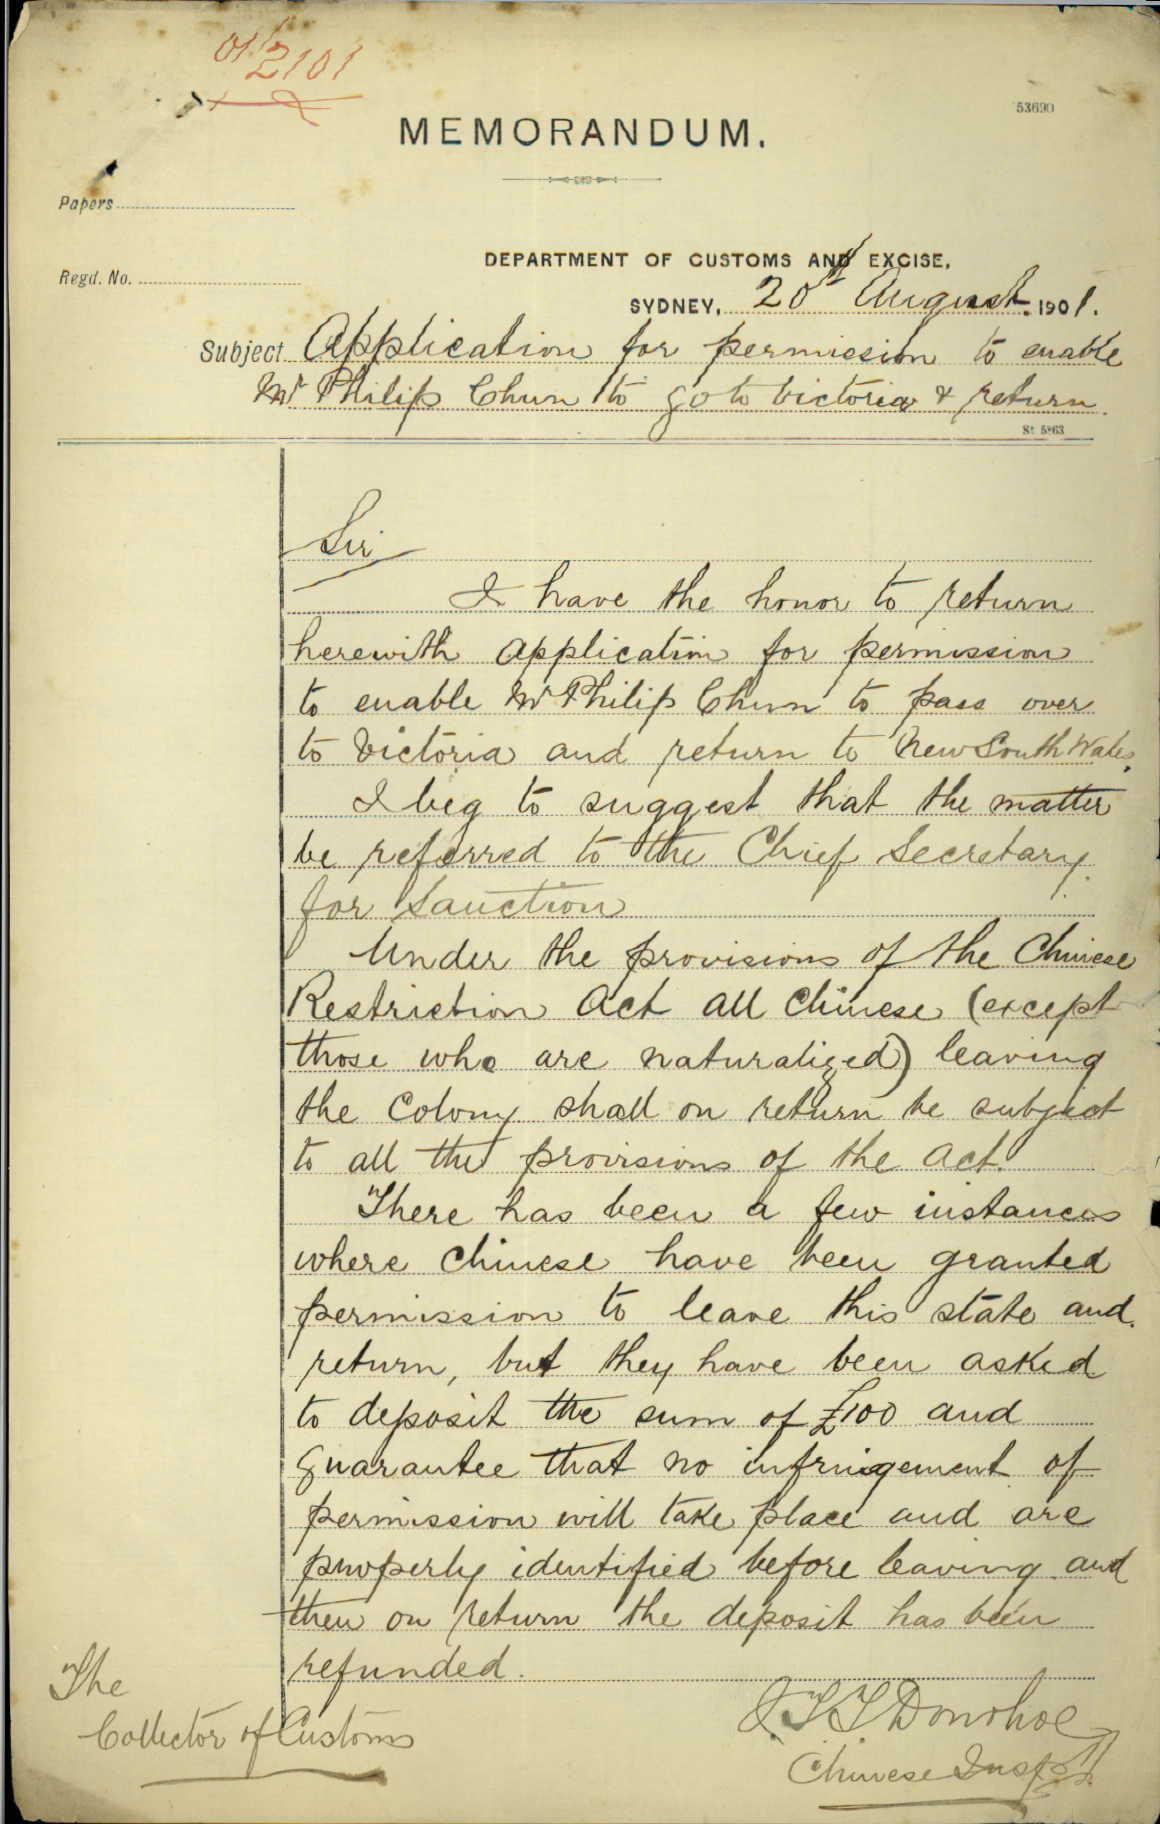 01/2101
53690
MEMORANDUM.
Papers
Regd. No.
DEPARTMENT OF CUSTOMS AND EXCISE,
SYDNEY, 20th August 1901.
Subject Application for permission to enable
Mr Philip Chun to go to Victoria & return.
St 5863
Sir
I have the honor to return
herewith application for permission
to enable Mr Philip Chun to pass over
to Victoria and return to New South Wales.
I beg to suggest that the matter
be referred to the Chief Secretary
for Sanction
Under the provisions of the Chinese
Restriction Act all Chinese (except
those who are naturalized) leaving
the Colony shall on return be subject
to all the provisions of the Act.
There has been a few instances
where Chinese have been granted
permission to leave this state and
return, but they have been asked
to deposit the sum of £100 and
guarantee that no infringement of
permission will take place and are
properly identified before leaving and
then on return the deposit has been
refunded.
The
Collector of Customs
J T T Donohoe
Chinese Inspr